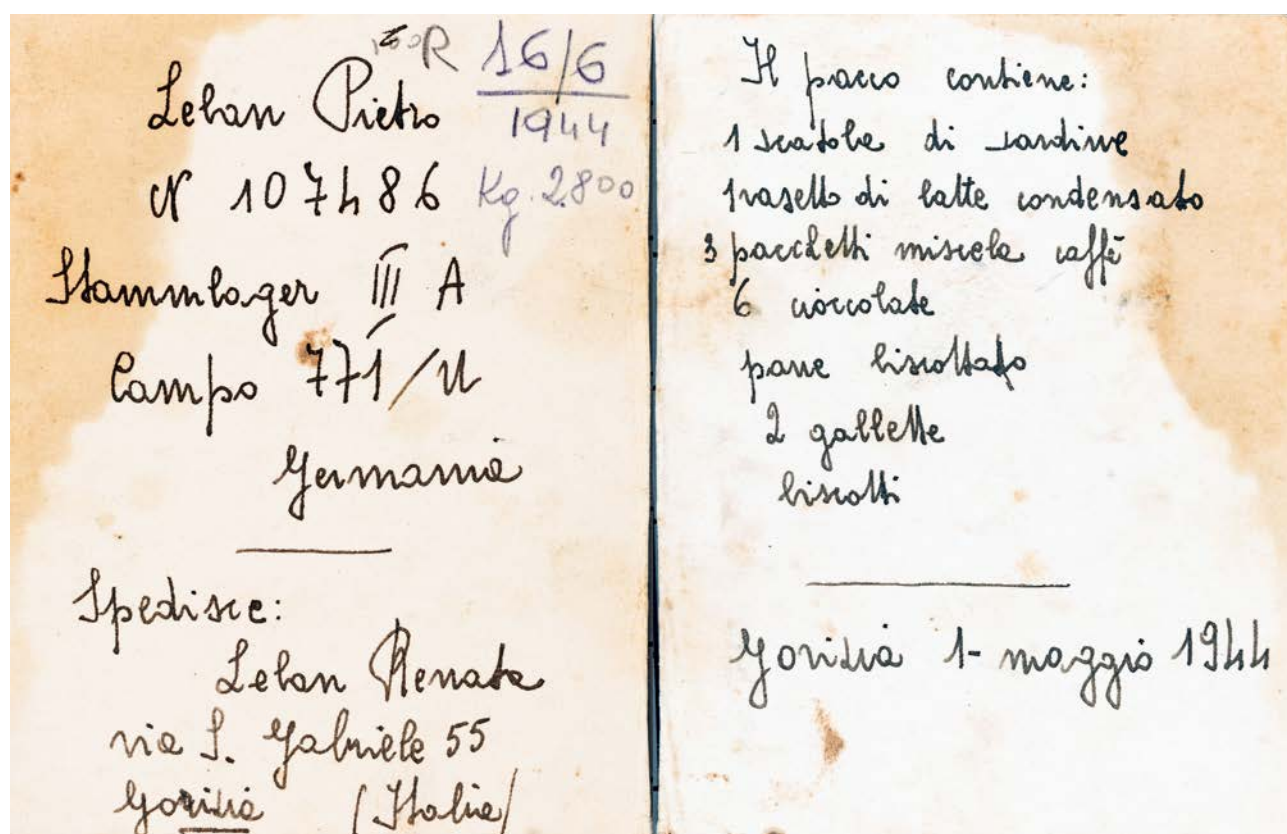 R 16/6
1944
Kg. 2.800
Leban Pietro
N 107486
Stammlager III A
Campo 771/U
Germania
Spedisce:
Leban Renata
via S. Gabriele 55
Gorizia (Italia)
Il pacco contiene:
1 scatola di sardine
1 vasetto di latte condensato
3 pacchetti miscela caffè
6 cioccolate
pane biscottato
2 gallette
biscotti
Gorizia 1- maggio 1944